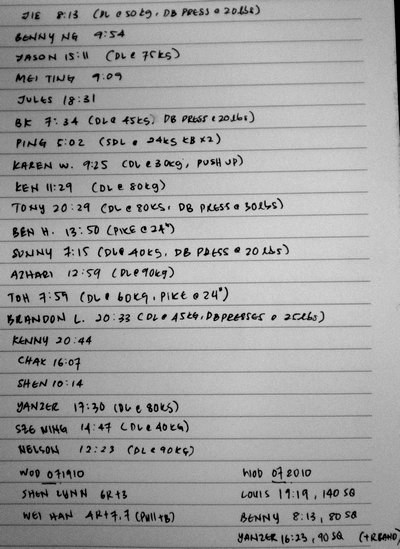 JIE 8:13 (DL @ 50kg, DB PRESS @ 20lbs)
BENNY NG 9:54
JASON 15:11 (DL @ 75KG)
MEI TING 9:09
JULES 18:31
BK 7:34 (DL@ 45KG, DB PRESS @ 20lbs)
PING 5:02 (SDL @ 24KG KB x2)
KAREN W. 9:25 (DL@ 30kg, PUSH UP)
KEN 11:29 (DL@ 80kg)
TONY 20:29 (DL@ 80KG, DB PRESS @ 30lbs)
BEN H. 13:50 (PIKE @ 24")
SUNNY 7:15 (DL@ 40KG, DB PRESS @ 20 lbs)
AZHARI 12:59 (DL@ 90kg)
TOH 7:59 (DL@ 60kg, PIKE @ 24")
BRANDON L. 20:33 (DL@ 45KG, DBPRESSES @ 25lbs)
KENNY 20:44
CHAK 16:07
SHEN 10:14
YANZER 17:30 (DL@ 80KG)
SZE MING 14:47 (DL@ 40KG)
NELSON 12:23 (DL@ 90KG)
WOD 071910 WOD 072010
SHEN LYNN 6R+3 LOUIS 19:19, 140 SQ
WEI HAN 4R+7,7 (Pull+B) BENNY 8:13, 80 SQ
YANZER 16:23, 90 SQ (+RBAND)